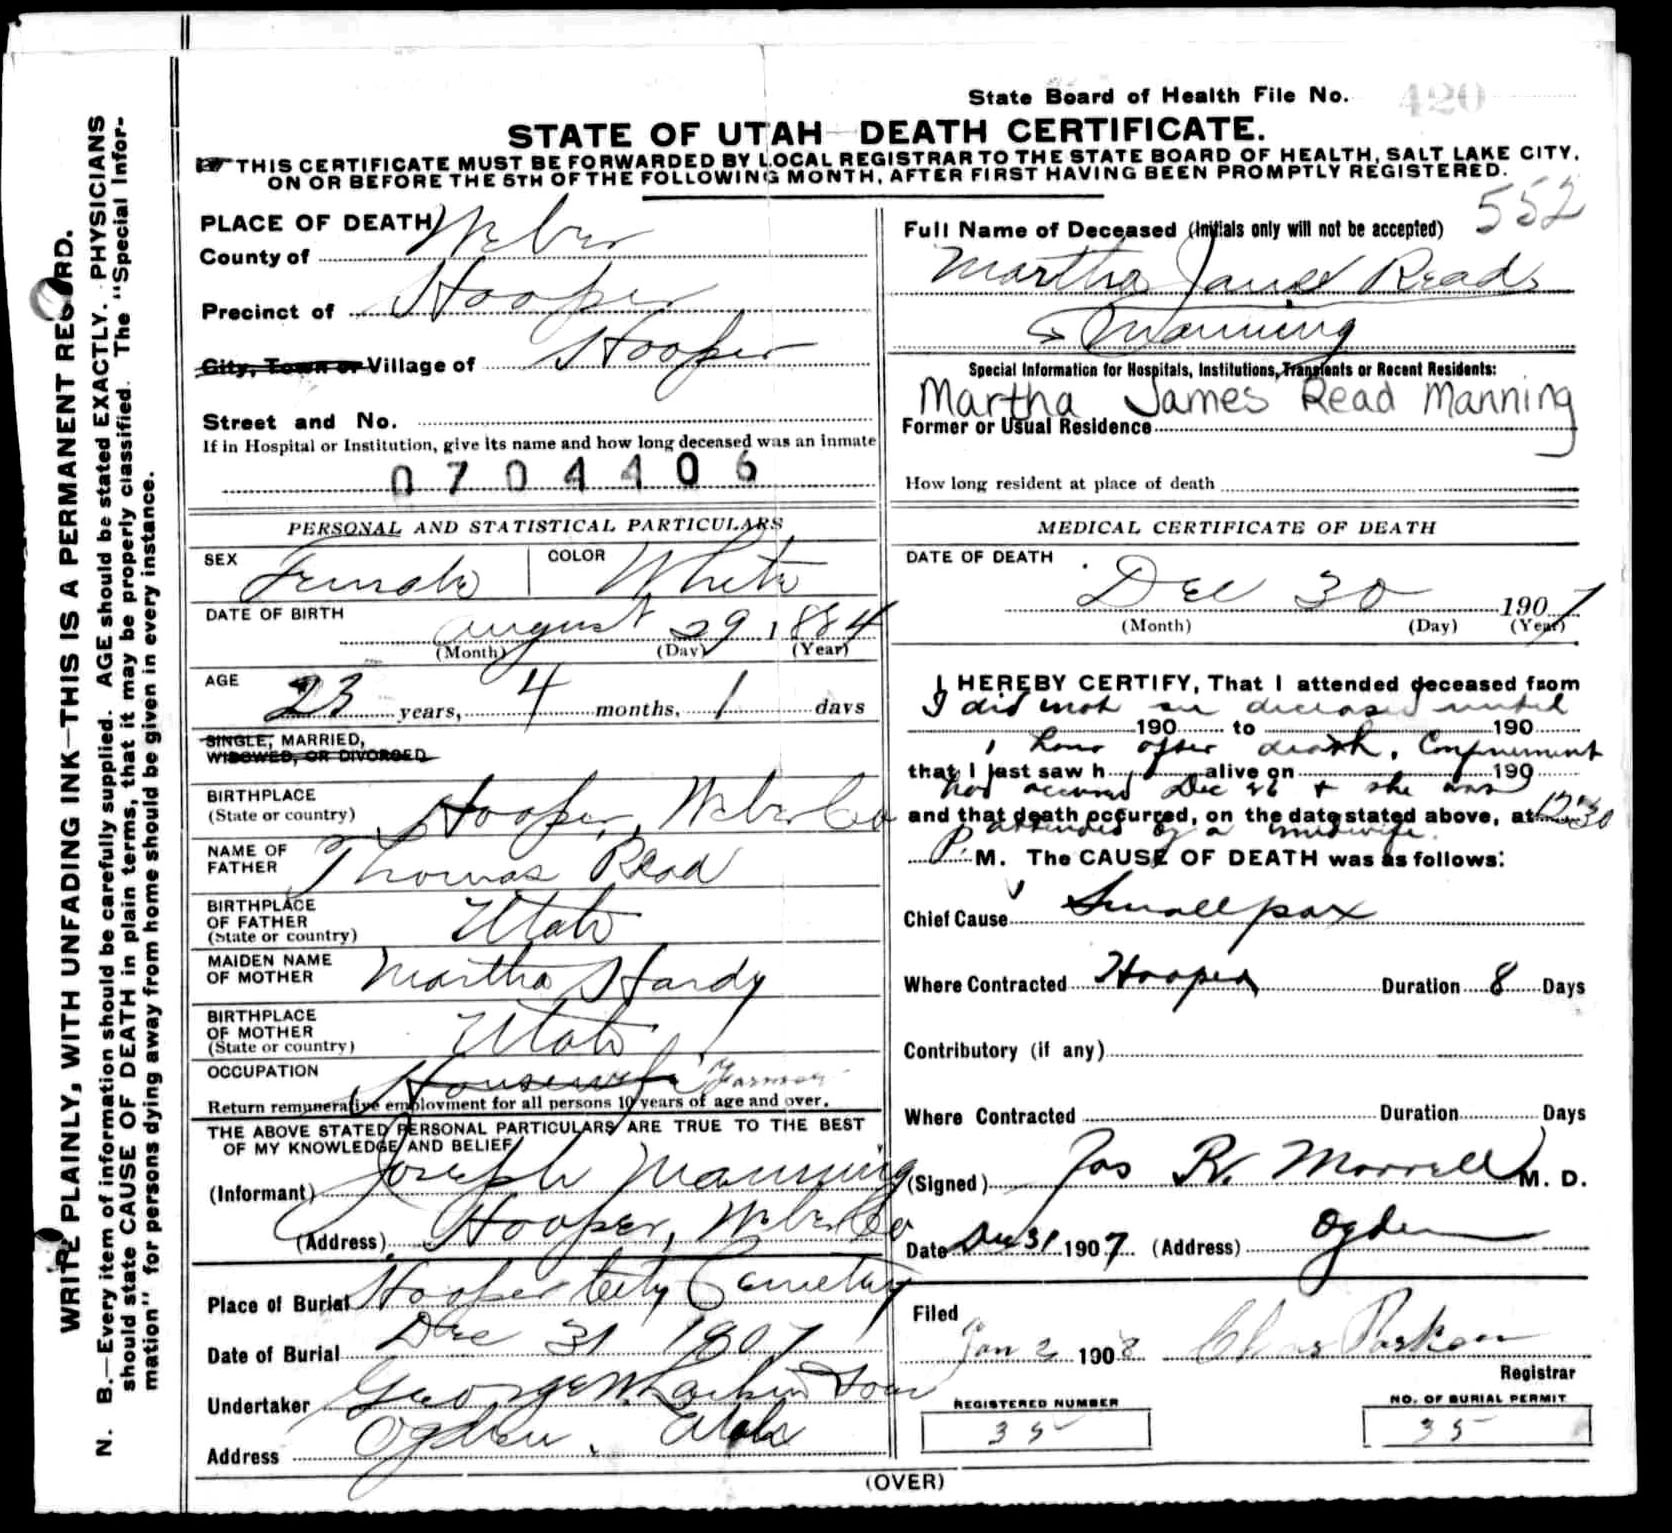 State Board of Health File No. 420
STATE OF UTAH—DEATH CERTIFICATE.
THIS CERTIFICATE MUST BE FORWARDED BY LOCAL REGISTRAR TO THE STATE BOARD OF HEALTH, SALT LAKE CITY,
ON OR BEFORE THE 5TH OF THE FOLLOWING MONTH, AFTER FIRST HAVING BEEN PROMPTLY REGISTERED.
552
WRITE PLAINLY, WITH UNFADING INK—THIS IS A PERMANENT RECORD.
N. B.—Every item of information should be carefully supplied. AGE should be stated EXACTLY. PHYSICIANS
should state CAUSE OF DEATH in plain terms, that it may be properly classified. The "Special Infor-
mation" for persons dying away from home should be given in every instance.
PLACE OF DEATH
County of Weber
Precinct of Hooper
City, Town or Village of Hooper
Street and No.
If in Hospital or Institution, give its name and how long deceased was an inmate
0704406
PERSONAL AND STATISTICAL PARTICULARS
SEX Female COLOR White
DATE OF BIRTH
August 29, 1884
(Month) (Day) (Year)
AGE 23 years, 4 months, 1 days
SINGLE, MARRIED,
WIDOWED, OR DIVORCED
BIRTHPLACE
(State or country) Hooper, Weber Co
NAME OF
FATHER Thomas Read
BIRTHPLACE
OF FATHER
(State or country) Utah
MAIDEN NAME
OF MOTHER Martha Hardy
BIRTHPLACE
OF MOTHER
(State or country) Utah
OCCUPATION Housewife Farmer
Return remunerative employment for all persons 10 years of age and over.
THE ABOVE STATED PERSONAL PARTICULARS ARE TRUE TO THE BEST
OF MY KNOWLEDGE AND BELIEF
(Informant) Joseph Manning
(Address) Hooper, Weber Co
Place of Burial Hooper City Cemetery
Date of Burial Dec 31 1907
Undertaker George W Larkin & Sons
Address Ogden, Utah
Full Name of Deceased (Initials only will not be accepted)
Martha James Read
Manning
Special Information for Hospitals, Institutions, Transients or Recent Residents:
Martha James Read Manning
Former or Usual Residence
How long resident at place of death
MEDICAL CERTIFICATE OF DEATH
DATE OF DEATH
Dec 30 1907
(Month) (Day) (Year)
I HEREBY CERTIFY, That I attended deceased from
I did not see deceased until
190 to 190
1 hour after death. Confinement
that I last saw h alive on 190
had occured Dec 26 & she was
and that death occurred, on the date stated above, at 12 30
attended by a midwife.
P. M. The CAUSE OF DEATH was as follows:
Chief Cause Smallpox
Where Contracted Hooper Duration 8 Days
Contributory (if any)
Where Contracted Duration Days
(Signed) Jas R. Morrell M. D.
Date Dec 31 1907 (Address) Ogden
Filed
Jan 2 1908 Chas Parker
Registrar
REGISTERED NUMBER
35
NO. OF BURIAL PERMIT
35
(OVER)